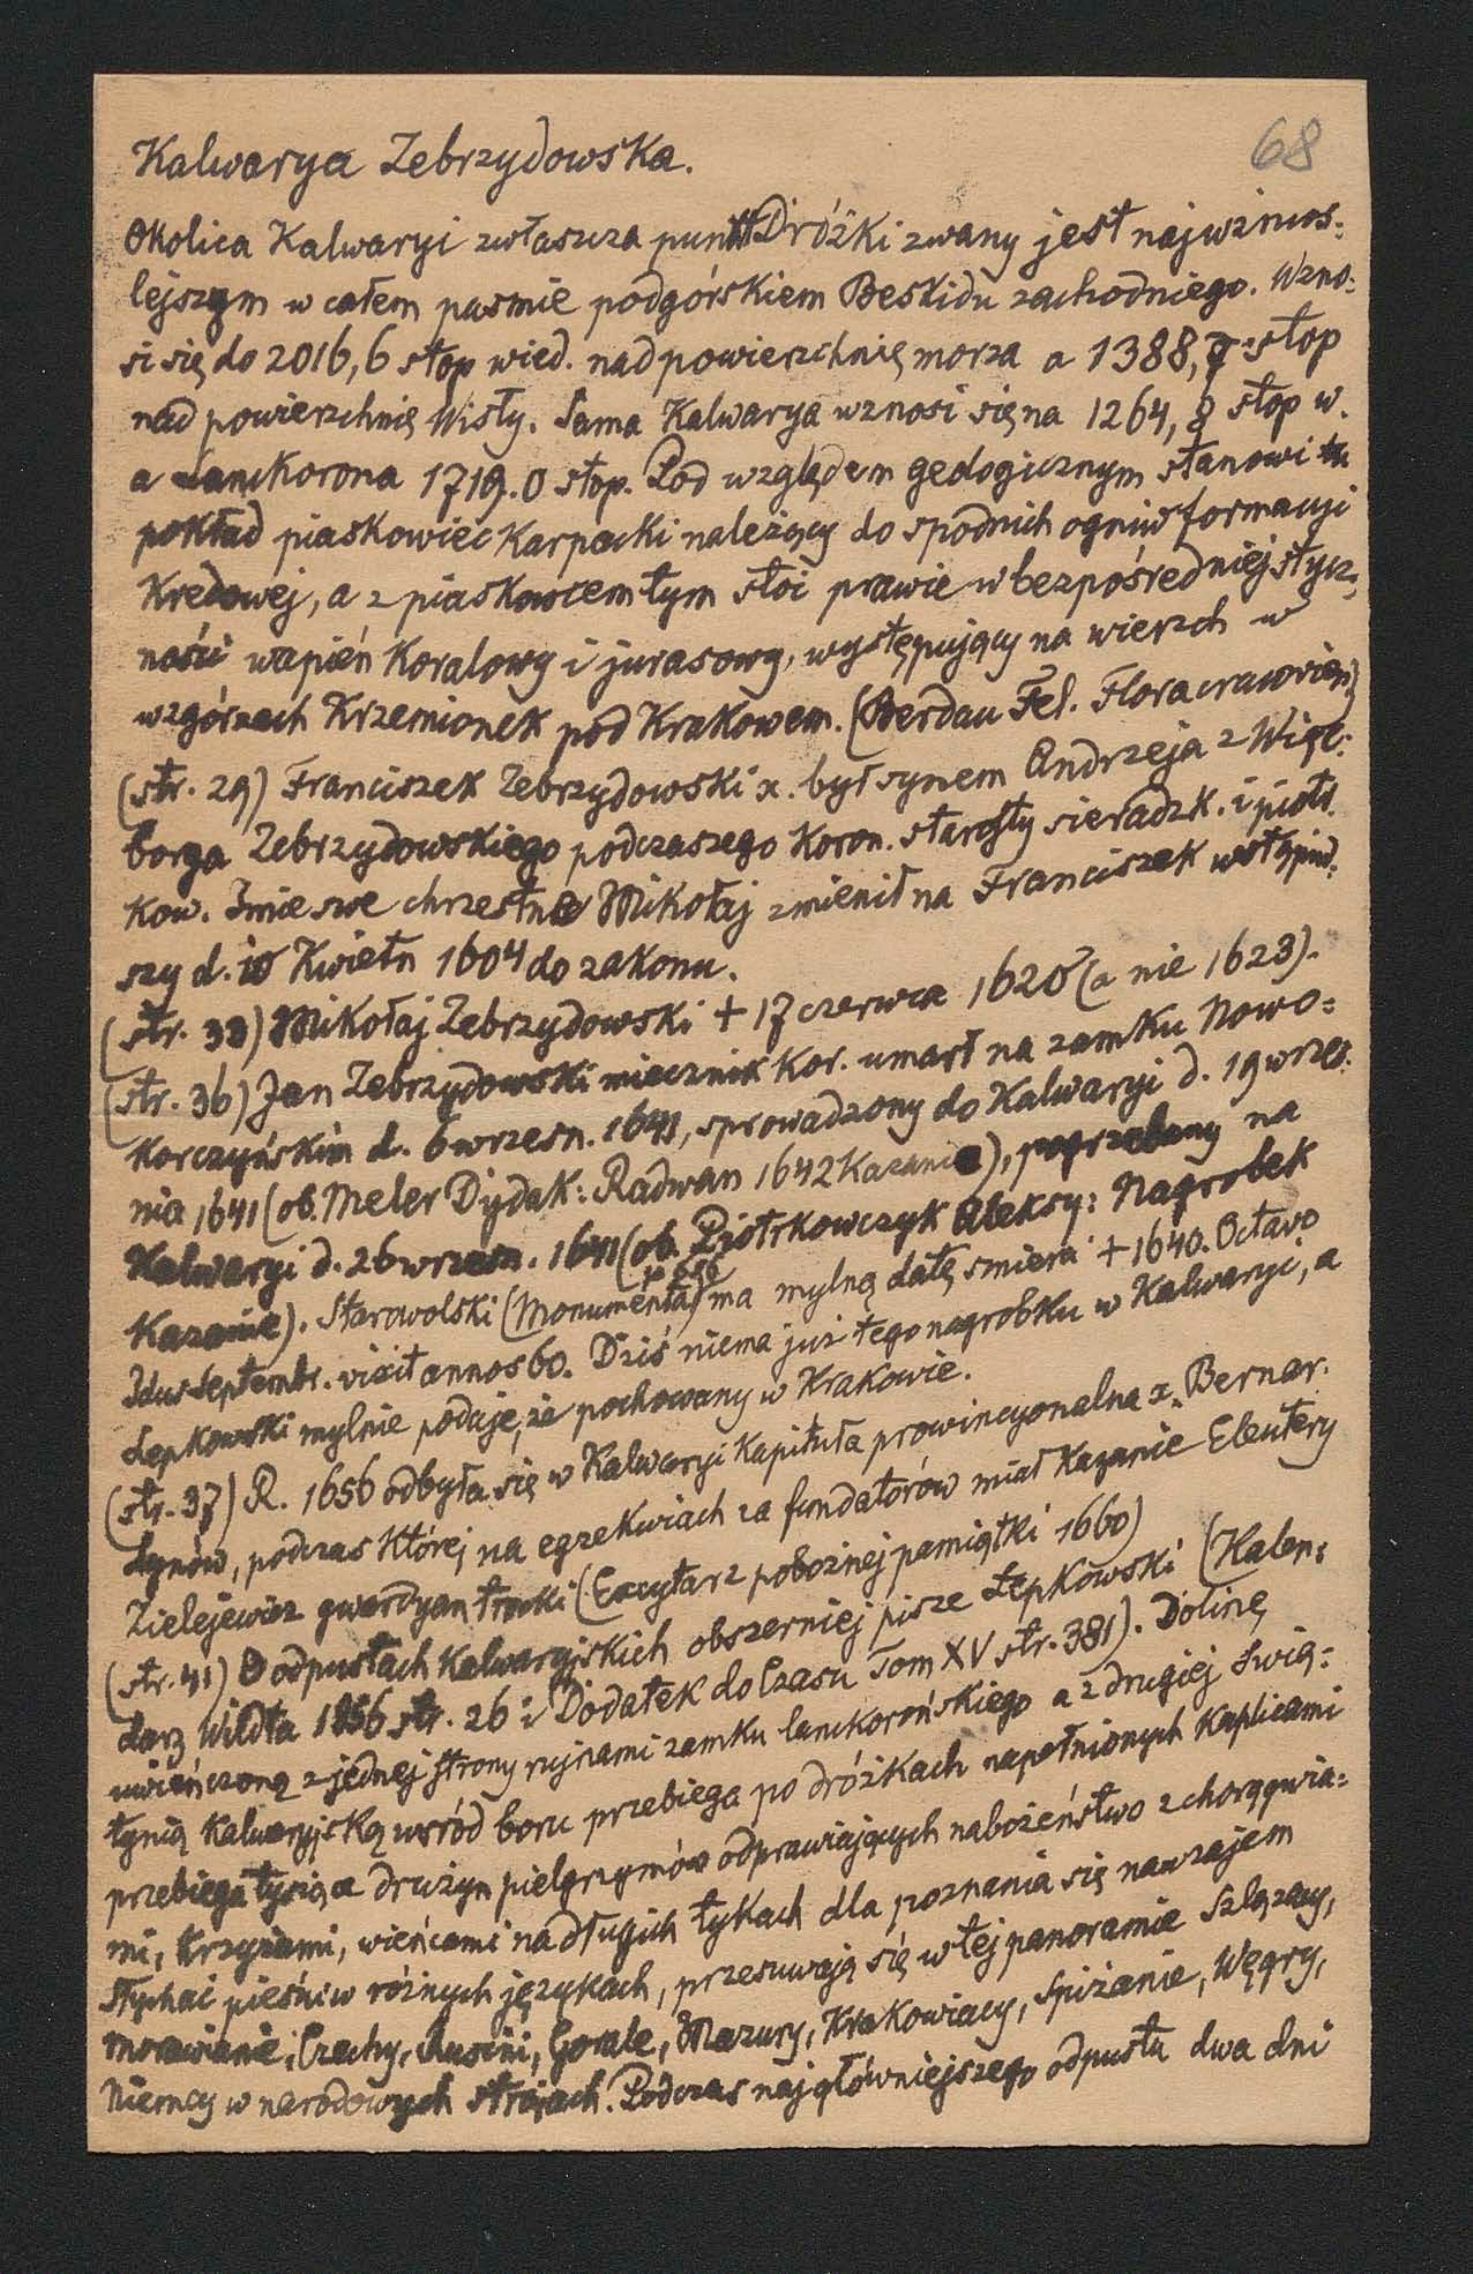 68
Kalwarya Zebrzydowska.
Okolica Kalwaryi zwłaszcza punkt Dróżki zwany jest najwznios=
lejszym w całem pasmie podgórskiem Beskidu zachodniego. Wzno=
si się do 2016,6 stop wied. nad powierzchnię morza a 1388,7 stop
nad powierzchnię Wisły. Sama Kalwarya wznosi się na 1264,8 stop w.
a Lanckorona 1719.0 stop. Pod względem geologicznym stanowi tu
pokład piaskowiec Karpacki należący do spodnich ogniw formacyi
Kredowej, a z piaskowcem tym stoi prawie w bezpośredniej stycz=
ności wapień Koralowy i jurasowy, występujący na wierzch w
wzgórzach Krzemionek pod Krakowem. (Berdau Fel. Flora cracovien)
(str. 29) Franciszek Zebrzydowski x. był synem Andrzeja z Więc=
borga Zebrzydowskiego podczaszego Koron. starosty sieradzk. i piotr
kow. Imie swe chrzestne Mikołaj zmienił na Franciszek wstąpiw=
szy d. 10 Kwietn 1604 do zakonu.
(str. 33) Mikołaj Zebrzydowski + 17 czerwca 1620 (a nie 1623).
(str. 36) Jan Zebrzydowski miecznik Kor. umarł na zamku Nowo=
Korczyńskim d. 6 wrzesn. 1641, sprowadzony do Kalwaryi d. 19 wrzes=
nia 1641 (ob. Meler Dydak: Radwan 1642 Kazanie), pogrzebany na
Kalwaryi d. 26 wrzesn. 1641 (ob. Piotrkowczyk Aleksy: Nagrobek
Kazanie). Starowolski (Monumenta p 656) ma mylną datę smierci + 1640. Octavo
Idus Septembr. vixit annos 60. Dziś niema już tego nagrobku w Kalwaryi, a
Łepkowski mylnie podaje, że pochowany w Krakowie.
(str. 37) R. 1656 odbyła się w Kalwaryi Kapituła prowincyonalna x. Bernar.
dynów, podczas której na egzekwiach za fundatorów miał Kazanie Eleutery
Zielejewicz gwardyan trocki (Excytarz pobożnej pamiątki 1660)
(str. 41) O odpustach Kalwaryjskich obszerniej pisze Łepkowski (Kalen=
darz Wildta 1856 str. 26 i Dodatek do Czasu Tom XV str. 381). Dolinę
uwieńczoną z jednej strony rujnami zamku lanckorońskiego a z drugiej świą=
tynią Kalwaryjską wsród boru przebiega po dróżkach napełnionych Kaplicami
przebiega tysiące drużyn pielgrzymów odprawiających nabożeństwo z chorągwia=
mi, krzyżami, wieńcami na długich tykach dla poznania się nawzajem
Słychać pieśni w różnych językach, przesuwają się w tej panoramie Szlązacy,
morawianie, Czechy, Rusini, Gorale, Mazury, Krakowiacy, Spiżanie, Węgry,
Niemcy w narodowych strojach. Podczas najgłówniejszego odpustu dwa dni